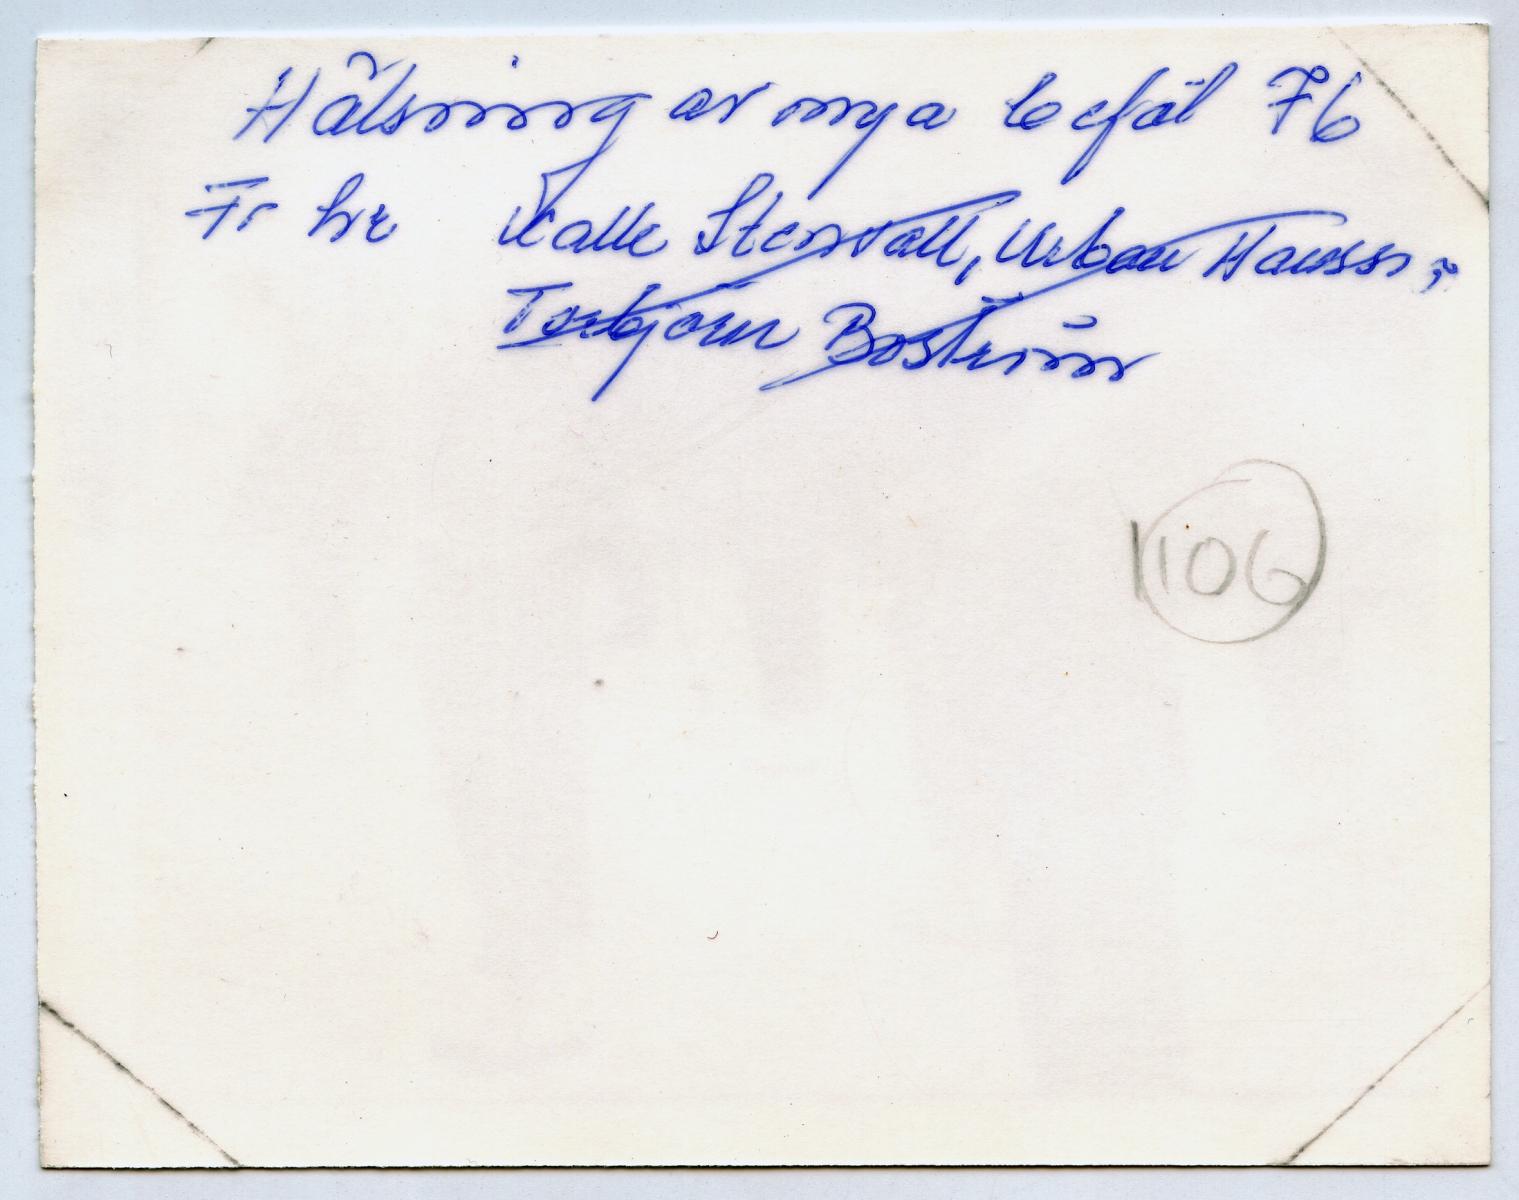 Hälsning av nya befäl 76
Fr hr Kalle Stenvall, Urban Hansson,
Torbjörn Boström
1106